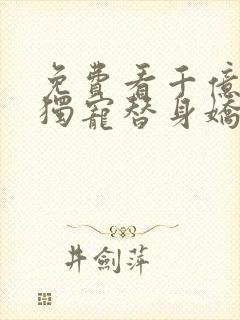 免費看千億
獨寵替身嬌
井劍萍